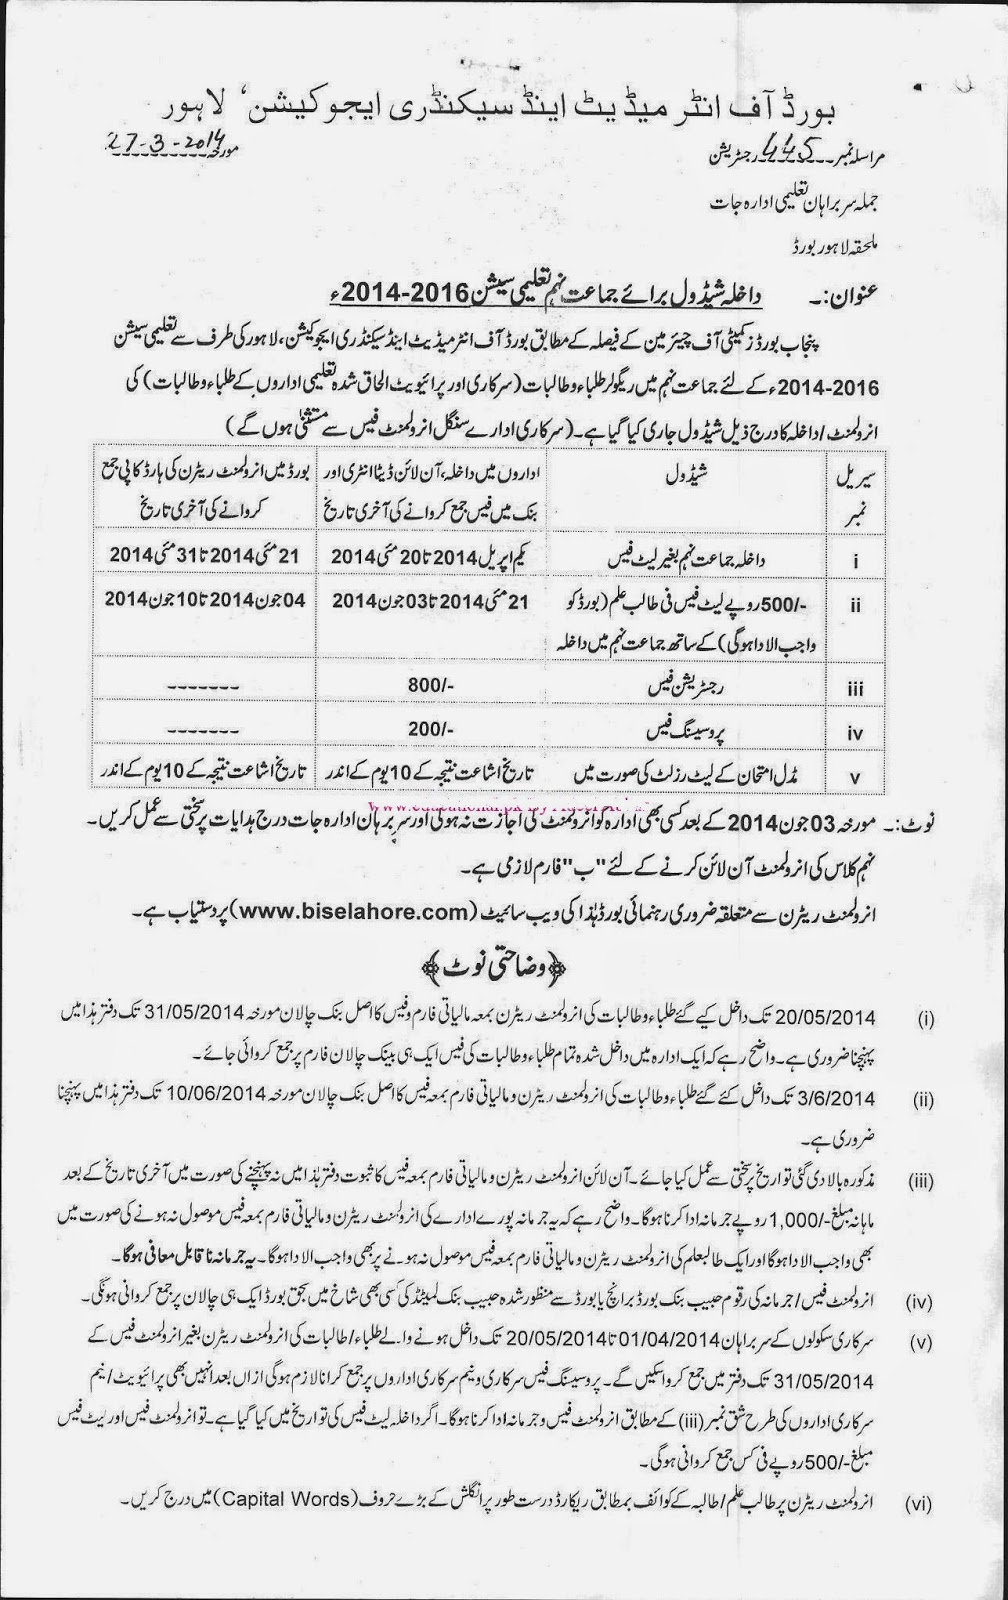 بورڈ آف انٹر میڈیٹ اینڈ سیکنڈری ایجوکیشن، لاہور
مراسلہ نمبر 445 رجسٹریشن
مورخہ 27-3-2014
جملہ سربراہان تعلیمی ادارہ جات
ملحقہ لاہور بورڈ
عنوان:۔ داخلہ شیڈول برائے جماعت نہم تعلیمی سیشن 2016-2014ء
پنجاب بورڈز کمیٹی آف چیئرمین کے فیصلہ کے مطابق بورڈ آف انٹرمیڈیٹ اینڈ سیکنڈری ایجوکیشن، لاہور کی طرف سے تعلیمی سیشن
2014-2016ء کے لئے جماعت نہم میں ریگولر طلباء و طالبات (سرکاری اور پرائیویٹ الحاق شدہ تعلیمی اداروں کے طلباء و طالبات) کی
انرولمنٹ / داخلہ کا درج ذیل شیڈول جاری کیا گیا ہے۔ (سرکاری ادارے سنگل انرولمنٹ فیس سے مستثنیٰ ہوں گے)
سیریل نمبر
شیڈول
اداروں میں داخلہ، آن لائن ڈیٹا انٹری اور
بنک میں فیس جمع کروانے کی آخری تاریخ
بورڈ میں انرولمنٹ ریٹرن کی ہارڈ کاپی جمع
کروانے کی آخری تاریخ
i داخلہ جماعت نہم بغیر لیٹ فیس یکم اپریل 2014 تا 20 مئی 2014 21 مئی 2014 تا 31 مئی 2014
ii 500/- روپے لیٹ فیس فی طالب علم (بورڈ کو 21 مئی 2014 تا 03 جون 2014 04 جون 2014 تا 10 جون 2014
واجب الادا ہوگی) کے ساتھ جماعت نہم میں داخلہ
iii رجسٹریشن فیس 800/- -------
iv پروسیسنگ فیس 200/- -------
v مڈل امتحان کے لیٹ رزلٹ کی صورت میں تاریخ اشاعت نتیجہ کے 10 یوم کے اندر تاریخ اشاعت نتیجہ کے 10 یوم کے اندر
نوٹ:۔ مورخہ 03 جون 2014 کے بعد کسی بھی ادارہ کو انرولمنٹ کی اجازت نہ ہوگی اور سربرہان ادارہ جات درج ہدایات پر سختی سے عمل کریں۔
نہم کلاس کی انرولمنٹ آن لائن کرنے کے لئے "ب" فارم لازمی ہے۔
انرولمنٹ ریٹرن سے متعلقہ ضروری رہنمائی بورڈ ہٰذا کی ویب سائیٹ (www.biselahore.com) پر دستیاب ہے۔
﴿وضاحتی نوٹ﴾
(i) 20/05/2014 تک داخل کیے گئے طلباء و طالبات کی انرولمنٹ ریٹرن بمعہ مالیاتی فارم و فیس کا اصل بنک چالان مورخہ 31/05/2014 تک دفتر ہذا میں
پہنچنا ضروری ہے۔ واضح رہے کہ ایک ادارہ میں داخل شدہ تمام طلباء و طالبات کی فیس ایک ہی بینک چالان فارم پر جمع کروائی جائے۔
(ii) 3/6/2014 تک داخل کئے گئے طلباء و طالبات کی انرولمنٹ ریٹرن و مالیاتی فارم بمعہ فیس کا اصل بنک چالان مورخہ 10/06/2014 تک دفتر ہذا میں پہنچنا
ضروری ہے۔
(iii) مذکورہ بالا دی گئی تواریخ پر سختی سے عمل کیا جائے۔ آن لائن انرولمنٹ ریٹرن و مالیاتی فارم بمعہ فیس کا ثبوت دفتر ہٰذا میں نہ پہنچنے کی صورت میں آخری تاریخ کے بعد
ماہانہ مبلغ -/1,000 روپے جرمانہ ادا کرنا ہوگا۔ واضح رہے کہ یہ جرمانہ پورے ادارے کی انرولمنٹ ریٹرن و مالیاتی فارم بمعہ فیس موصول نہ ہونے کی صورت میں
بھی واجب الادا ہوگا اور ایک طالبعلم کی انرولمنٹ ریٹرن و مالیاتی فارم بمعہ فیس موصول نہ ہونے پر بھی واجب الادا ہوگا۔ یہ جرمانہ ناقابل معافی ہوگا۔
(iv) انرولمنٹ فیس / جرمانہ کی رقوم حبیب بنک بورڈ برانچ یا بورڈ سے منظور شدہ حبیب بنک لمیٹڈ کی کسی بھی شاخ میں بحق بورڈ ایک ہی چالان پر جمع کروانی ہونگی۔
(v) سرکاری سکولوں کے سربراہان 01/04/2014 تا 20/05/2014 تک داخل ہونے والے طلباء / طالبات کی انرولمنٹ ریٹرن بغیر انرولمنٹ فیس کے
31/05/2014 تک دفتر میں جمع کروا سکیں گے۔ پروسیسنگ فیس سرکاری و نیم سرکاری اداروں پر جمع کرانا لازم ہوگی ازاں بعد انہیں بھی پرائیویٹ / نیم
سرکاری اداروں کی طرح شق نمبر (iii) کے مطابق انرولمنٹ فیس و جرمانہ ادا کرنا ہوگا۔ اگر داخلہ لیٹ فیس کی تواریخ میں کیا گیا ہے۔ تو انرولمنٹ فیس اور لیٹ فیس
مبلغ -/500 روپے فی کس جمع کروانی ہوگی۔
(vi) انرولمنٹ ریٹرن پر طالب علم / طالبہ کے کوائف بمطابق ریکارڈ درست طور پر انگلش کے بڑے حروف (Capital Words) میں درج کریں۔